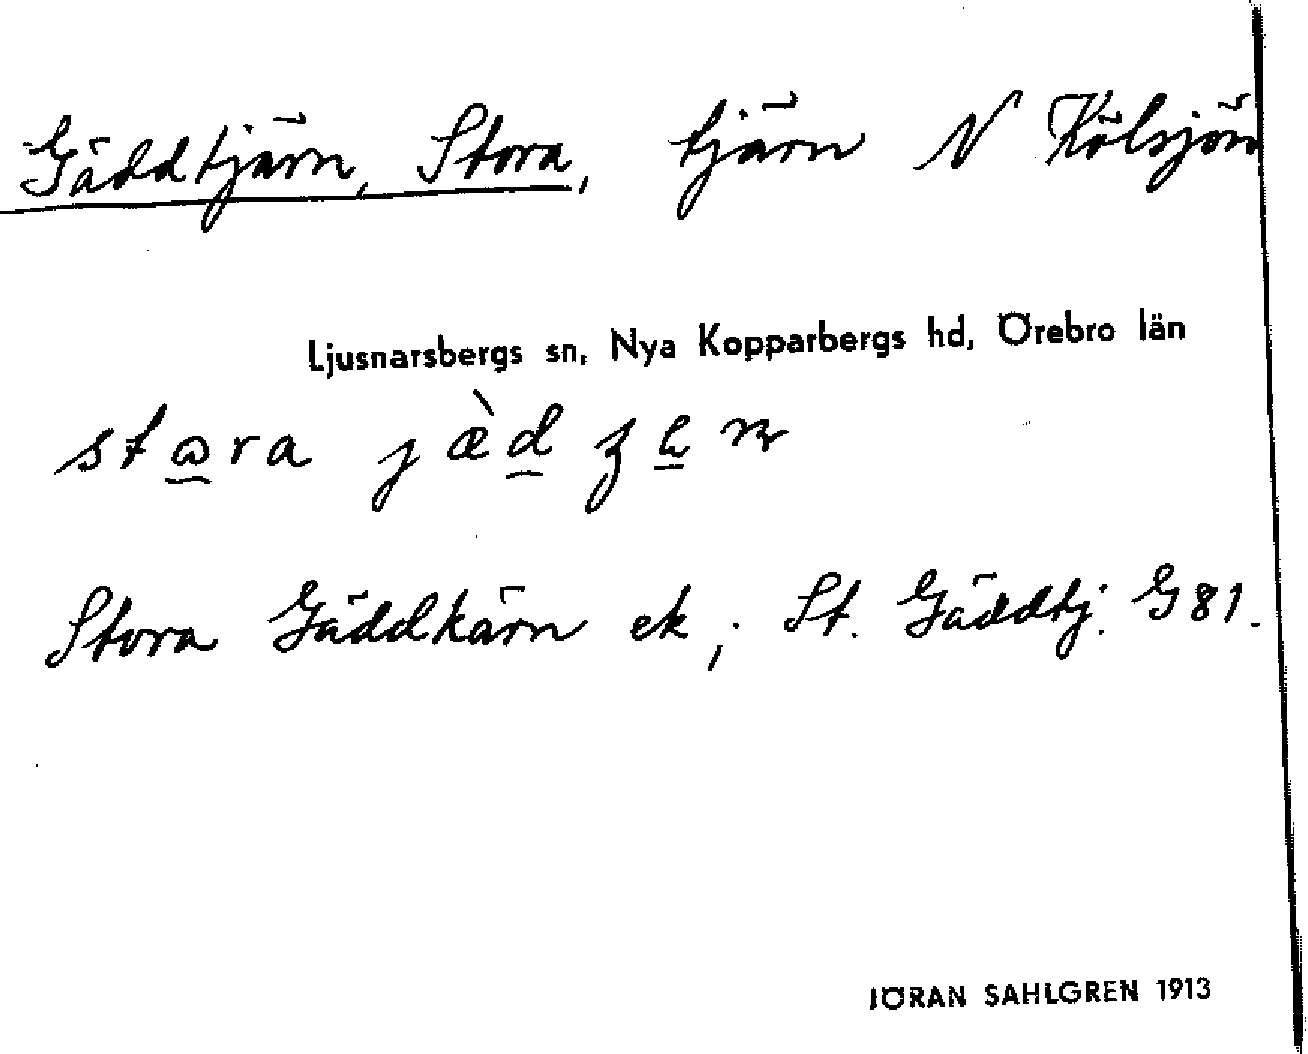 Gäddtjärn, Stora, tjärn N Kölsjön
Ljusnarsbergs sn, Nya Kopparbergs hd, Örebro län
stora jæ̀d
Stora Gäddkärn ek; St. Gäddtj. G 81.
JÖRAN SAHLGREN 1913